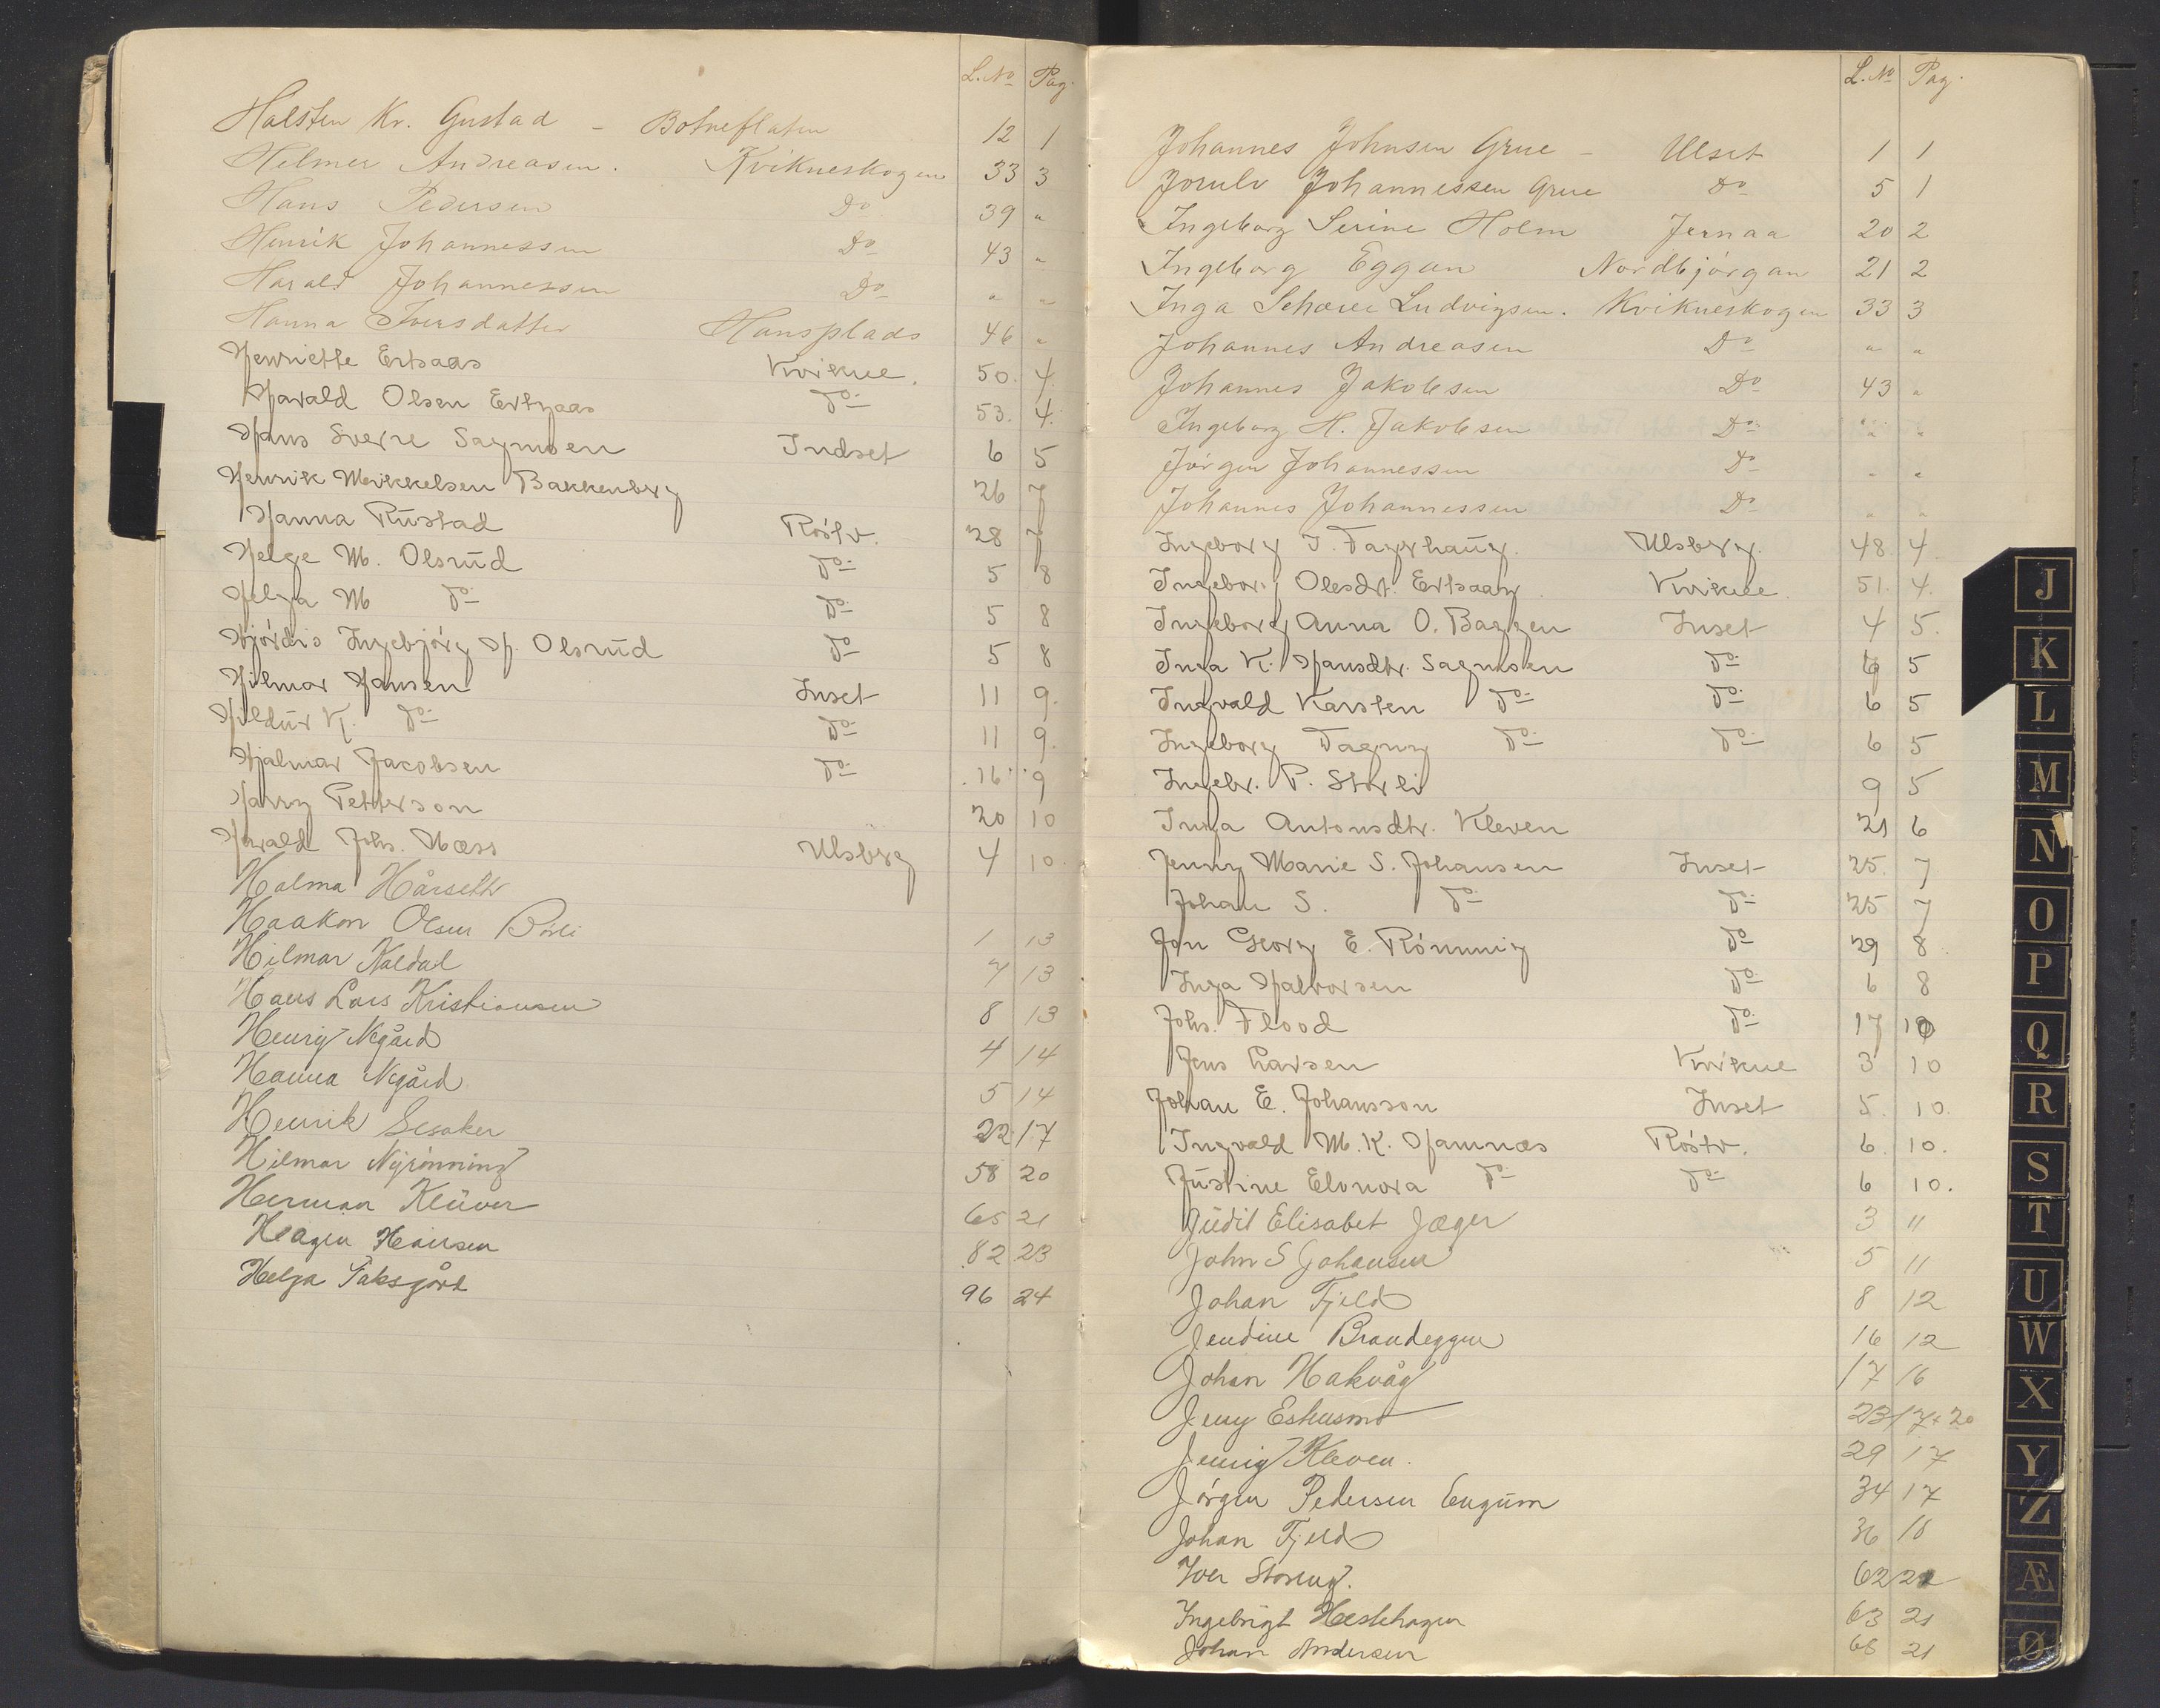 L. No Pag.
Halsten Kr. Gustad – Botneflaten 12 1
Helmer Andreasen. Kvikneskogen 33 3
Hans Pedersen Do 39 "
Henrik Johannessen Do 43 "
Harald Johannessen Do " "
Hanna Iversdatter Hansplads 46 "
Henriette Ertsaas Kvikne. 50. 4.
Harald Olsen Ertsaas do 53. 4.
Hans Sverre Sagmoen Indset 6 5
Henrik Mikkelsen Bakkenberg 26 7
Hanna Rustad Röstv. 28 7
Helge M. Olsrud do 5 8
Helga M do do 5 8
Hjördis Ingebjörg H. Olsrud do 5 8
Hilmar Hansen Inset 11 9.
Hildur K. do do 11 9.
Hjalmar Jacobsen do 16 9
Harry Petterson 20 10
Harald Johs. Næss Ulsberg 4 10.
Halma Hårseth
Haakon Olsen Börli 1 13
Hilmar Kaldal 7 13
Hans Lars Kristiansen 8 13
Henry Negård 4 14
Hanna Negård 5 14
Henrik Sesaker 22 17
Hilmar Nyrönning 58 20
Herman Klüver 65 21
Hagen Hansen 82 23
Helga Taksgård 96 24
L. No Pag.
Johannes Johnsen Grue – Ulset 1 1
Jorulv Johannessen Grue Do 5 1
Ingeborg Serine Holm Jernaa 20 2
Ingeborg Eggan Nordbjörgan 21 2
Inga Scharee Ludvigsen. Kvikneskogen 33 3
Johannes Andreasen Do " "
Johannes Jakobsen Do 43 "
Ingeborg H. Jakobsen Do " "
Jörgen Johannessen Do " "
Johannes Johannessen Do " "
Ingeborg I. Fagerhaug. Ulsberg. 48 4.
Ingeborg Olesdt. Ertsaas Kvikne. 51. 4.
Ingeborg Anna O. Baggen Inset 4 5.
Inga K. Hansdtr. Sagmoen do 6 5
Ingvald Karsten do do 6 5
Ingeborg Dagny do do 6 5
Ingebr. P. Storli 9 5
Inga Antonsdtr. Kleven 21 6
Jenny Marie S. Johansen Inset 25. 7
Johan S. do do 25 7
Jon Georg E. Rönning do 29 8
Inga Halvorsen do 6 8
Johs. Flood do 17 10
Jens Larsen Kvikne 3 10
Johan E. Johansson Inset 5. 10.
Ingvald M. K. Hamnæs Röstv. 6. 10.
Justine Elonora do do 6 10.
Judit Elisabet Jæger 3 11
John S Johansen 5 11
Johan Fjeld 8 12
Jendine Brandeggen 16 12
Johan Hakvåg 17 16
Jeny Eshusmo 23 17+20
Jenny Kleven. 29 17
Jörgen Pedersen Engum 34 17
Johan Fjeld 36 18
Iver Storeng. 62 21
Ingebrigt Hestehagen 63 21
Johan Andersen 68 21
J
K
L
M
N
O
P
Q
R
S
T
U
W
X
Y
Z
Æ
Ø